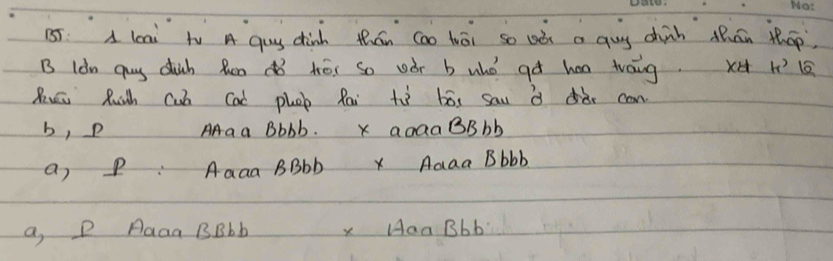 Date: No:
BT. 1 loài tv A quy định thân cao trội so với a quy định thân thấp,
B lớn quy định hoa đỏ trội so với b nhỏ qđ hoa trắng. XĐ tỉ lệ
kiểu hình của các phép lai tứ bội sau ở đời con.
b, P AAaa Bbbb. x aaaa BBbb
a, P : Aaaa BBbb x Aaaa Bbbb
a, P Aaaa BBbb x Aaa Bbb